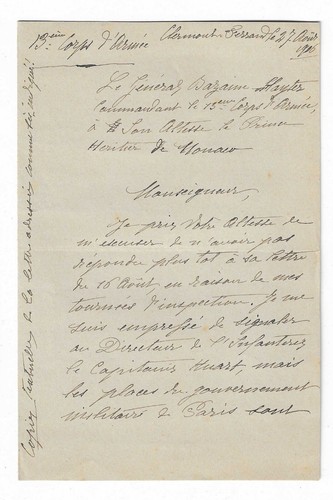 13ème Corps d'Armée
Clermont-Ferrand le 27 Août
Le Général Bazaine Hayter
Commandant le 13ème Corps d'Armée,
à Son Altesse le Prince
Héritier de Monaco
Monseigneur,
Je prie Votre Altesse de
m'excuser de n'avoir pas
répondu plus tôt à sa lettre
du 16 Août, en raison de mes
tournées d'inspection. Je me
suis empressé de signaler
au Directeur de l'Infanterie
le Capitaine Huart, mais
les places du gouvernement
militaire de Paris sont
Copie textuelle de la lettre adressée comme